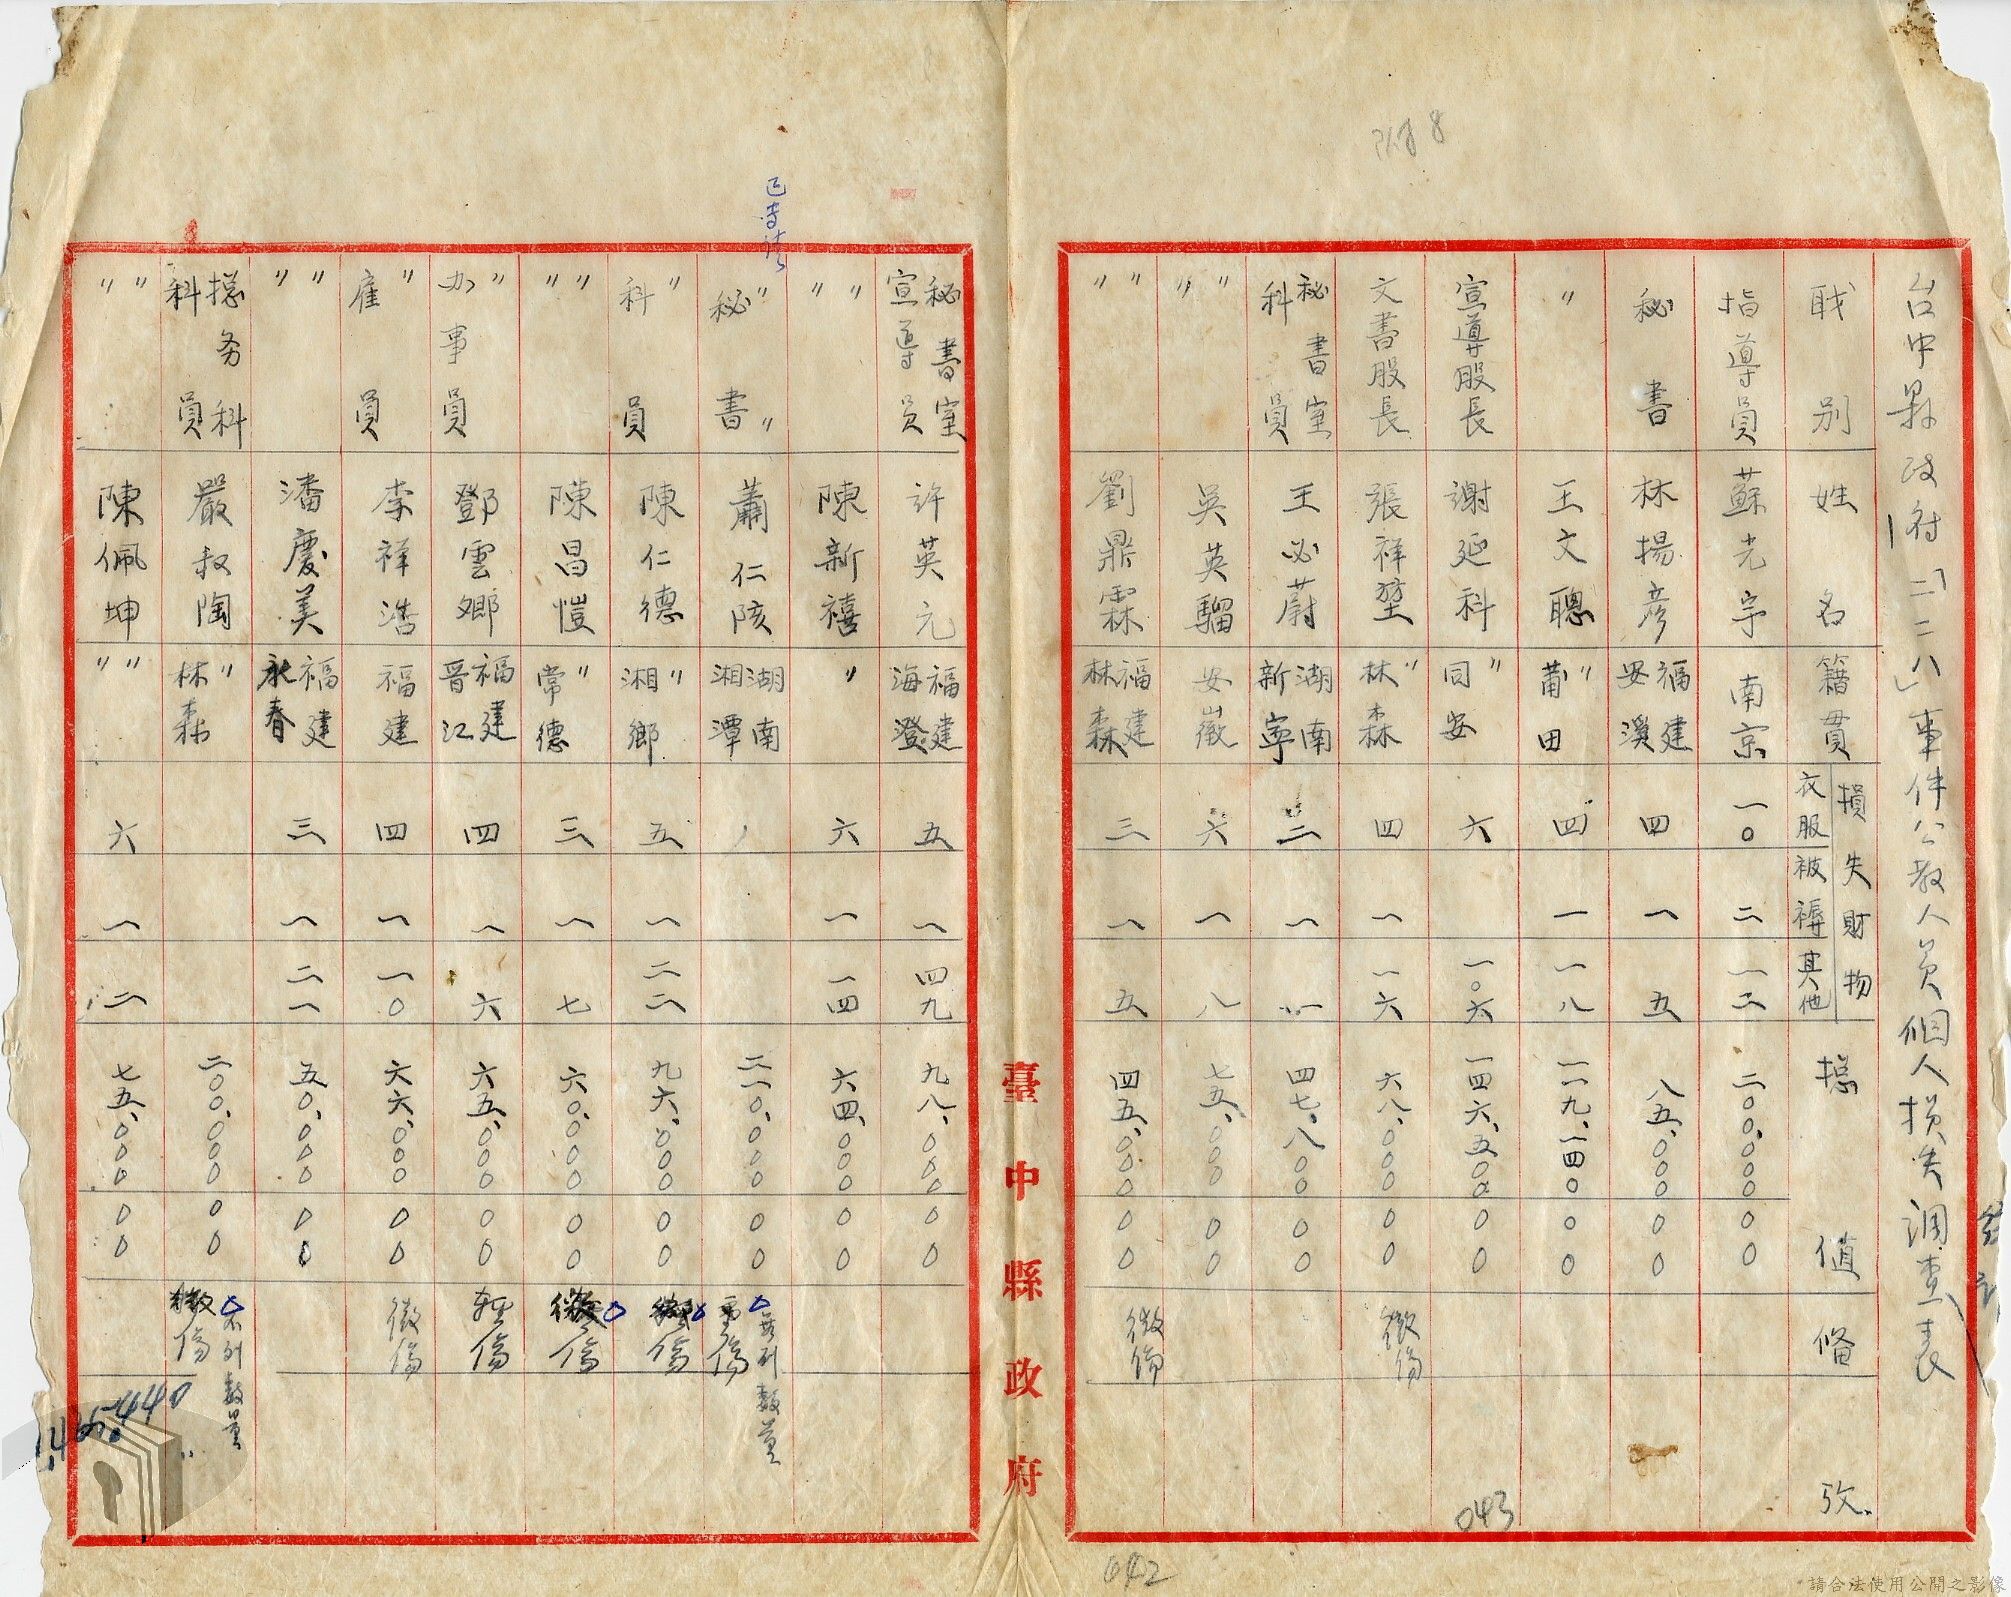 台中縣政府「二二八」事件公教人員個人損失調查表
職別 姓名 籍貫 損失財物 衣服 被褥 其他 總值 備攷
指導員 蘇光宇 南京 一〇 二 一二 二〇〇,〇〇〇 〇〇
秘書 林揚彥 福建安溪 四 一 五 八五,〇〇〇 〇〇
〃 王文聰 〃莆田 四 一 一八 一一九,一四〇 〇〇
宣導股長 謝延科 〃同安 六 一〇六 一四六,五〇〇 〇〇
文書股長 張祥堃 〃林森 四 一 一六 六八,〇〇〇 〇〇 微傷
秘書室科員 王必蔚 湖南新寧 二 一 一一 四七,八〇〇 〇〇
〃〃 吳英騮 安徽 六 一 八 七五,〇〇〇 〇〇
〃〃 劉鼎霖 福建林森 三 一 五 四五,〇〇〇 〇〇 微傷
臺中縣政府
秘書室宣導員 許英元 福建海澄 五 一 四九 九八,〇〇〇 〇〇
〃〃 陳新禧 〃 六 一 一四 六四,〇〇〇 〇〇
〃秘書 蕭仁陔 湖南湘潭 二一〇,〇〇〇 〇〇 重傷 無列數量
〃科員 陳仁德 〃湘鄉 五 一 二二 九六,〇〇〇 〇〇 傷
〃〃 陳昌愷 〃常德 三 一 七 六〇,〇〇〇 〇〇 傷
〃办事員 鄧雲鄉 福建晉江 四 一 六 六五,〇〇〇 〇〇 輕傷
〃雇員 李祥浩 福建 四 一 一〇 六六,〇〇〇 〇〇 微傷
〃〃 潘慶美 福建永春 三 一 二一 五〇,〇〇〇 〇〇
總务科科員 嚴叔陶 〃林森 二〇〇,〇〇〇 〇〇 微傷 不列數量
〃〃 陳佩坤 〃〃 六 一 二 七五,〇〇〇 〇〇
043
042
請合法使用公開之影像